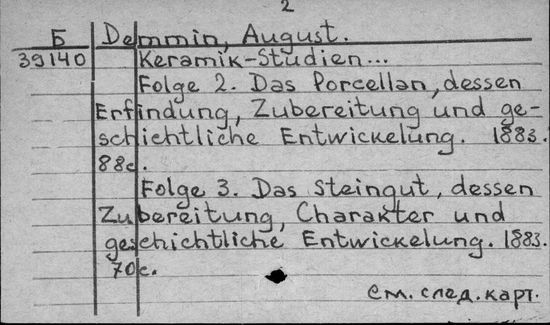 2
Б Demmin, August.
39140 Keramik-Studien...
Folge 2. Das Porcellan, dessen
Erfindung, Zubereitung und ge-
schichtliche Entwickelung. 1883.
88с.
Folge 3. Das Steingut, dessen
Zubereitung, Charakter und
geschichtliche Entwickelung. 1883.
70с.
см. след. карт.